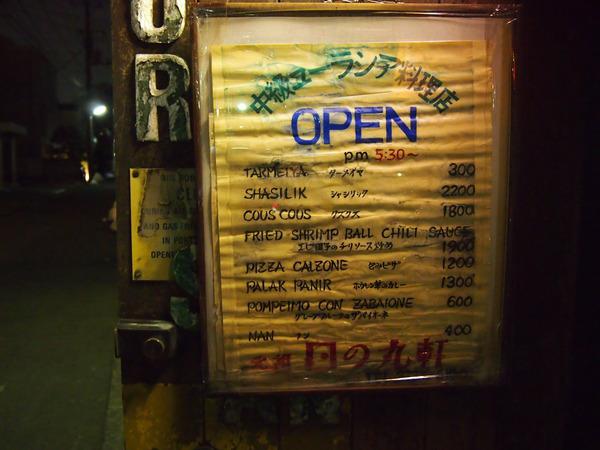 U
R
中級ユーラシア料理店
OPEN
pm 5:30~
TARMEIYA ターメイヤ 300
SHASILIK シャシリック 2200
COUS COUS クスクス 1800
FRIED SHRIMP BALL CHILI SAUCE
エビ団子のチリソース炒め 1900
PIZZA CALZONE 包みピザ 1200
PALAK PANIR ホウレン草のカレー 1300
POMPEIMO CON ZABAIONE 600
グレープフルーツのザバイオーネ
NAN ナン 400
元祖 日の丸軒